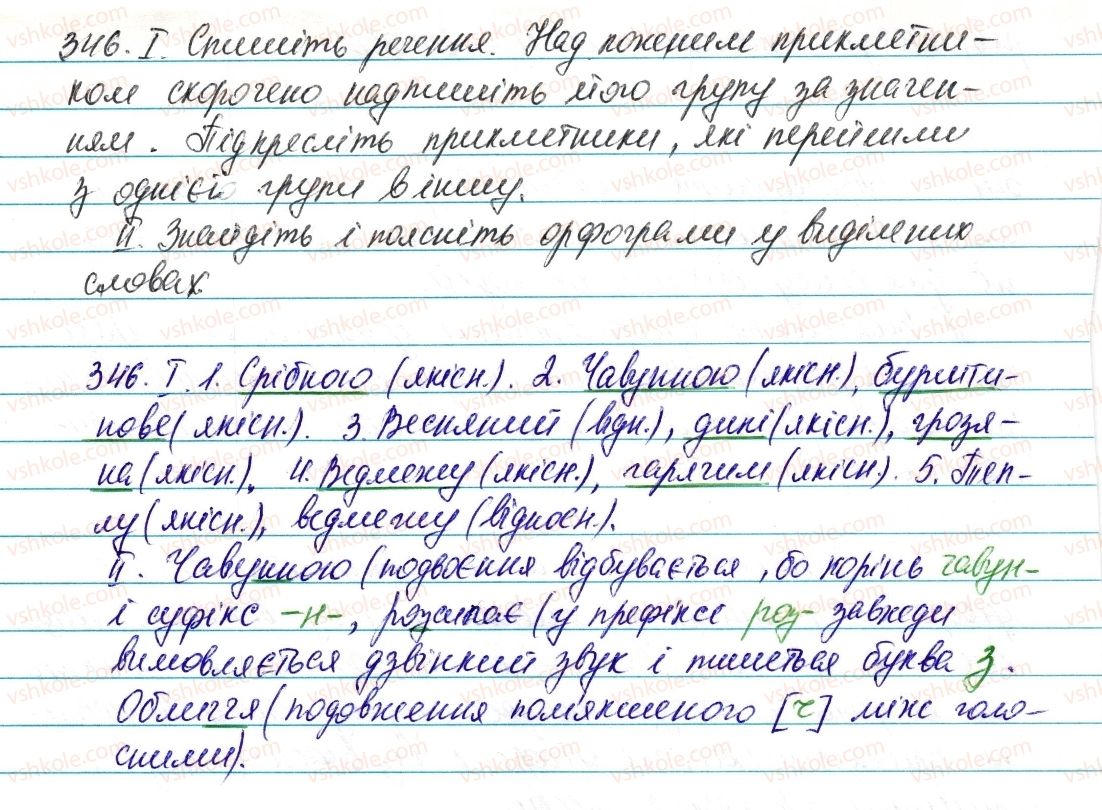 346. І. Спишіть речення. Над кожним прикметни-
ком скорочено надпишіть його групу за значен-
ням. Підкресліть прикметники, які перейшли
з однієї групи в іншу.
ІІ. Знайдіть і поясніть орфограми у виділених
словах.
346. І. 1. Срібною (якісн.). 2. Чавунною (якісн.), буршти-
нове (якісн.). 3. Весняний (відн.), дикі (якісн.), грозя-
на (якісн.). 4. Ведмежу (якісн.), гарячим (якісн.). 5. Теп-
лу (якісн.), ведмежу (відносн.).
ІІ. Чавунною (подвоєння відбувається, бо корінь чавун-
і суфікс -н-, розсипає (у префіксі роз- завжди
вимовляється дзвінкий звук і пишеться буква з.
Обличчя (подовження пом'якшеного [ч] між голо-
сними).